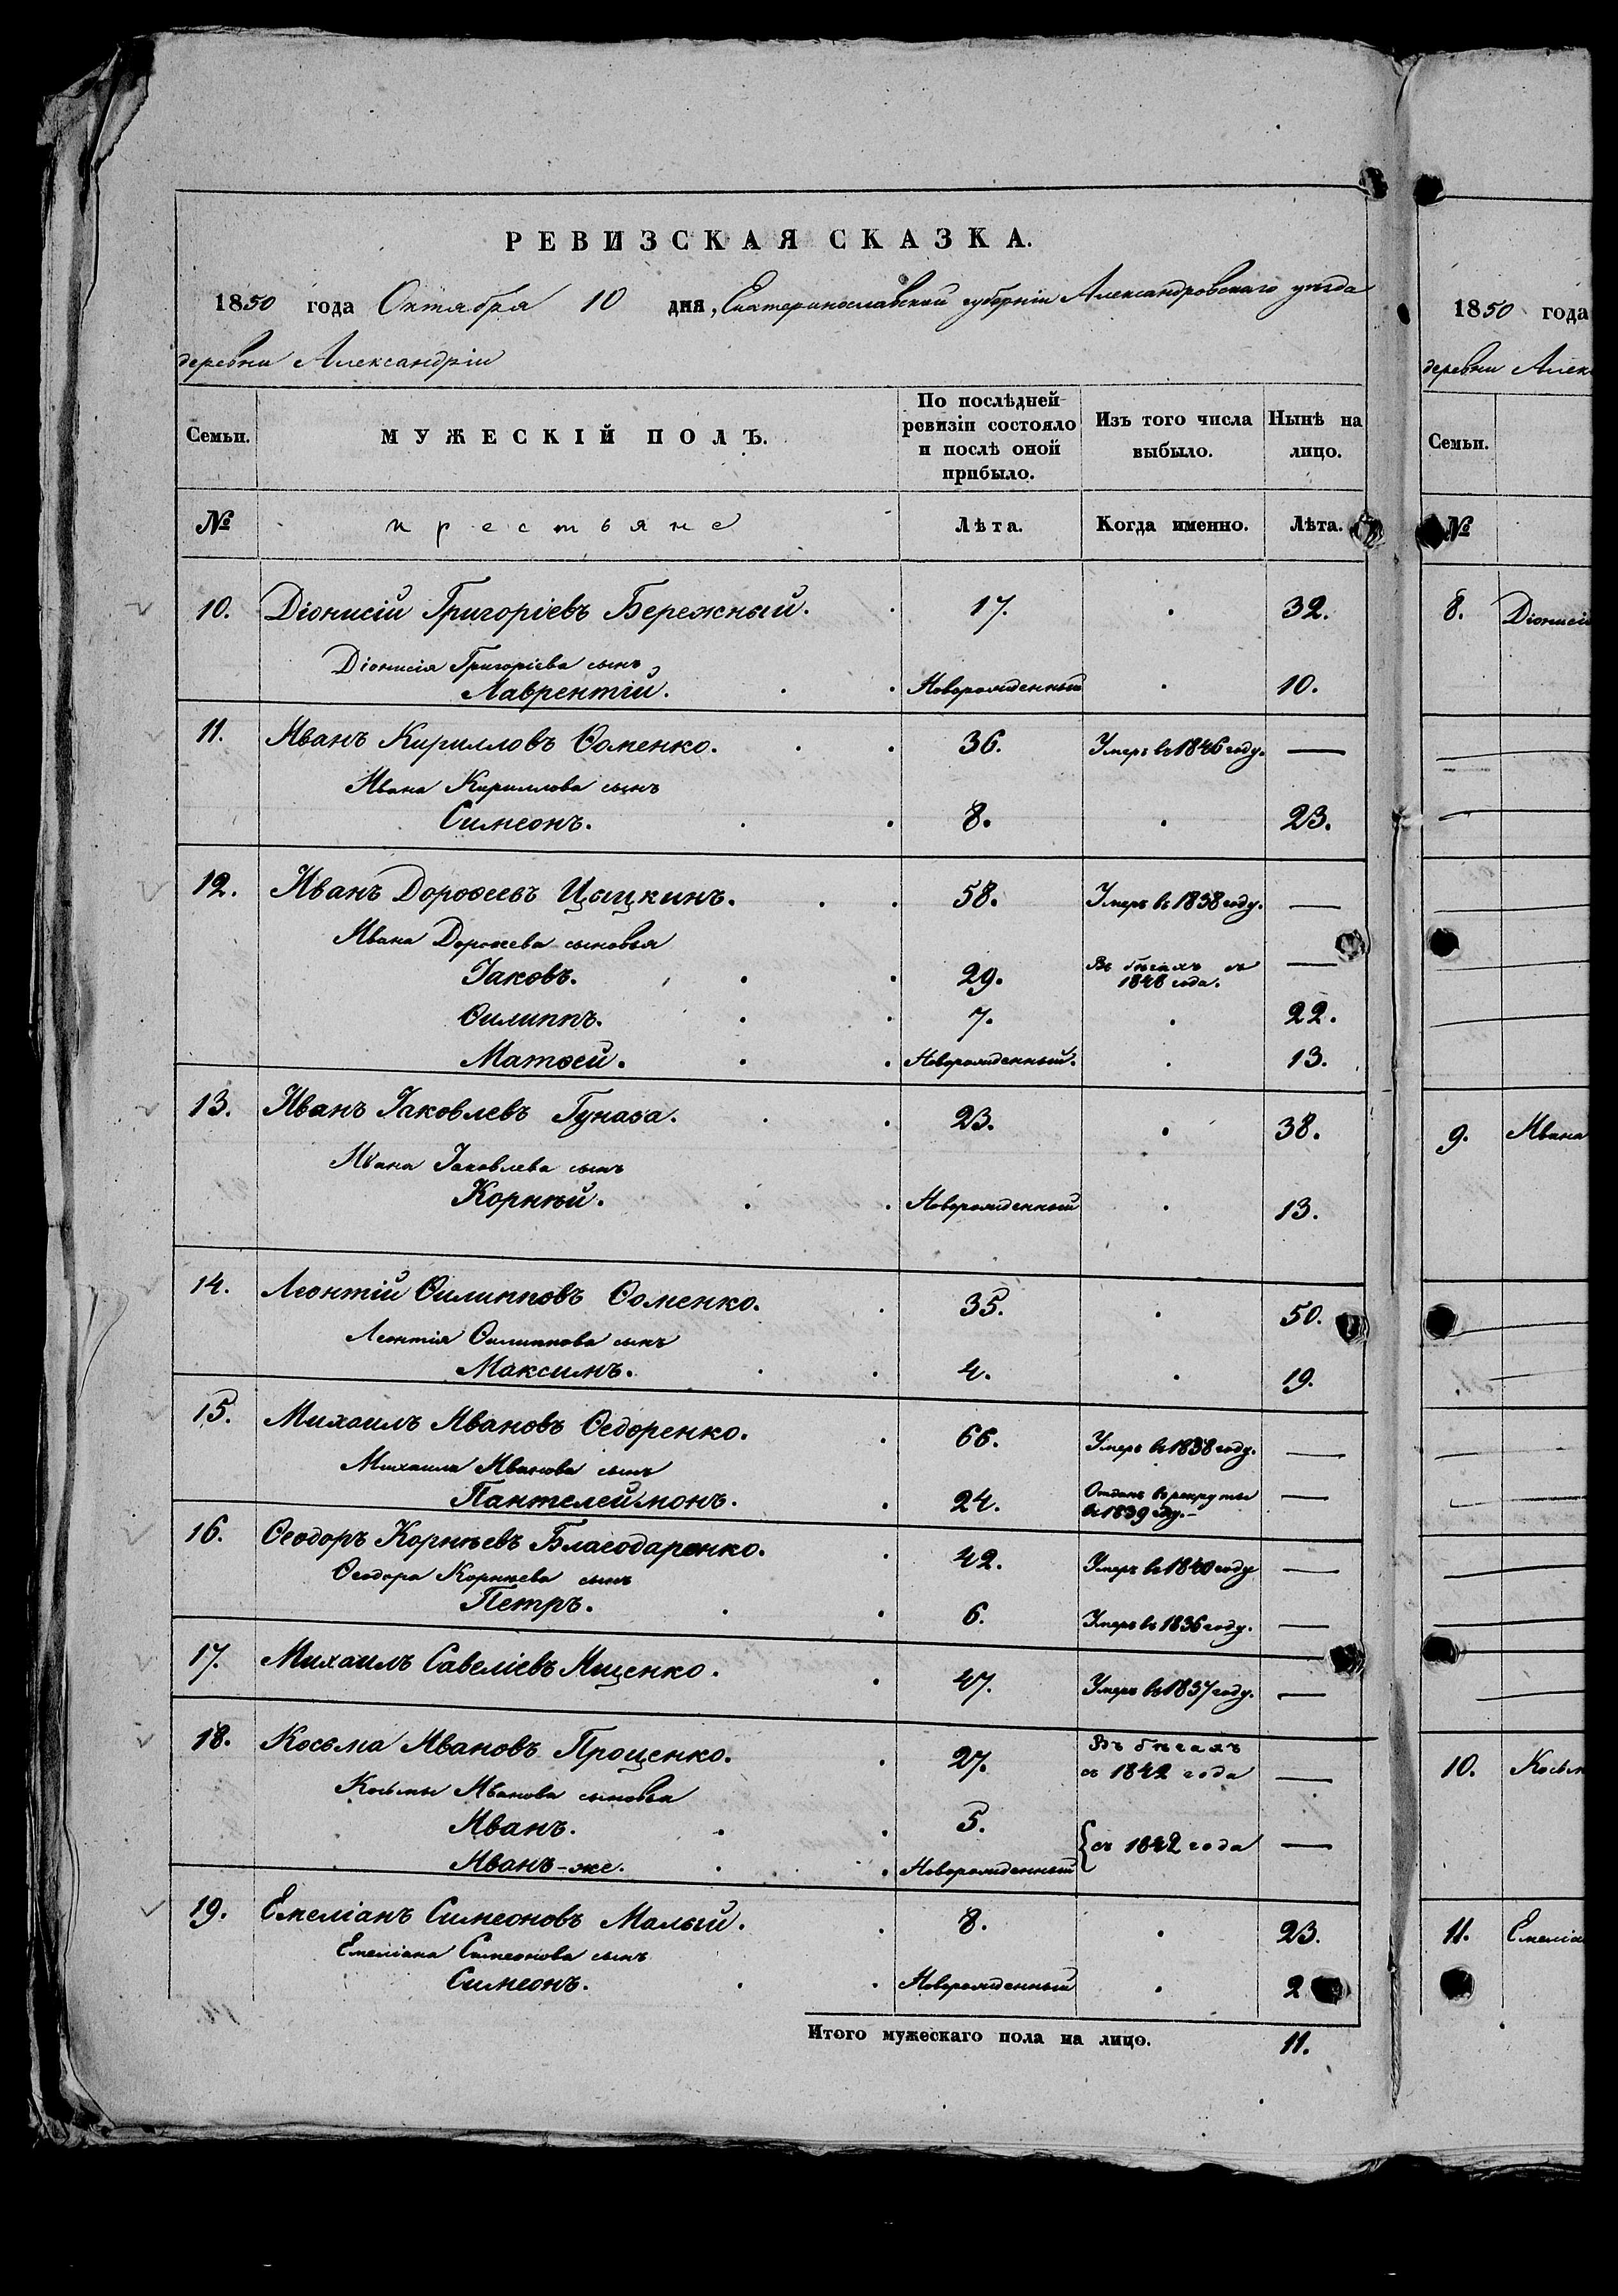 РЕВИЗСКАЯ СКАЗКА.
1850 года Октября 10 дня, Екатеринославской губерніи Александровскаго уѣзда
деревни Александріи
Семьи. МУЖЕСКІЙ ПОЛЪ. По послѣдней ревизіи состояло и послѣ оной прибыло. Изъ того числа выбыло. Нынѣ на лицо.
№ крестьяне Лѣта. Когда именно. Лѣта.
10. Діонисій Григоріевъ Бережный. 17. 32.
Діонисія Григоріева сынъ
Лаврентій. Новорожденный 10.
11. Иванъ Кирилловъ Ѳоменко. 36. Умеръ въ 1846 году. —
Ивана Кириллова сынъ
Симеонъ. 8. 23.
12. Иванъ Дороѳеевъ Цыцкинъ. 58. Умеръ въ 1838 году. —
Ивана Дороѳеева сыновья
Іаковъ. 29. Въ бѣгахъ съ 1848 года. —
Ѳилиппъ. 7. 22.
Матѳей. Новорожденный. 13.
13. Иванъ Іаковлевъ Гуназа. 23. 38.
Ивана Іаковлева сынъ
Корнѣй. Новорожденный 13.
14. Леонтій Ѳилипповъ Ѳоменко. 35. 50.
Леонтія Ѳилиппова сынъ
Максимъ. 4. 19.
15. Михаилъ Ивановъ Ѳедоренко. 66. Умеръ въ 1838 году. —
Михаила Иванова сынъ
Пантелеймонъ. 24. Отданъ въ рекруты въ 1839 году. —
16. Ѳеодоръ Корнѣевъ Благодаренко. 42. Умеръ въ 1840 году —
Ѳеодора Корнѣева сынъ
Петръ. 6. Умеръ въ 1836 году. —
17. Михаилъ Савеліевъ Ищенко. 47. Умеръ въ 1837 году. —
18. Косьма Ивановъ Проценко. 27. Въ бѣгахъ съ 1842 года —
Косьмы Иванова сыновья
Иванъ. 5. { съ 1842 года —
Иванъ-же. Новорожденный
19. Емеліанъ Симеоновъ Малый. 8. 23.
Емеліана Симеонова сынъ
Симеонъ. Новорожденный 2
Итого мужескаго пола на лицо. 11.
1850 года
деревни Алек
Семьи.
№
8. Діонисі
9. Ивана
10. Косьм
11. Емеліа